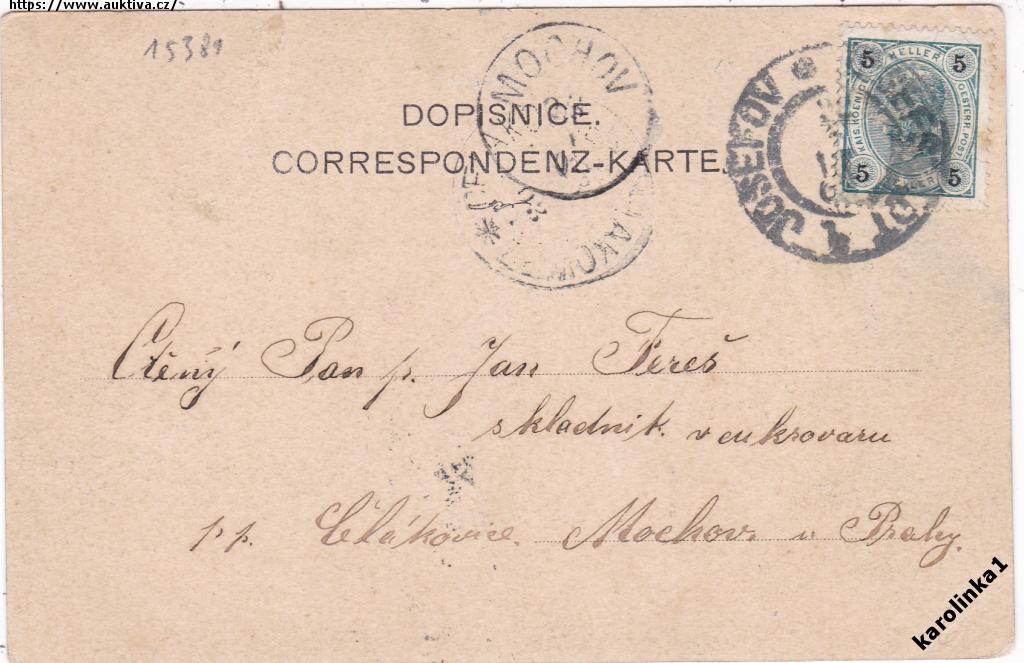 https://www.auktiva.cz/
15381
DOPISNICE.
CORRESPONDENZ-KARTE.
MOCHOV
JOSEFOV
5 HELLER 5
KAIS. KOENIGL. OESTERR. POST
5 HELLER 5
Ctěný Pan p. Jan Fereš
skladník v cukrovaru
p. p. Čelákovice. Mochov. u Prahy.
karolinka1